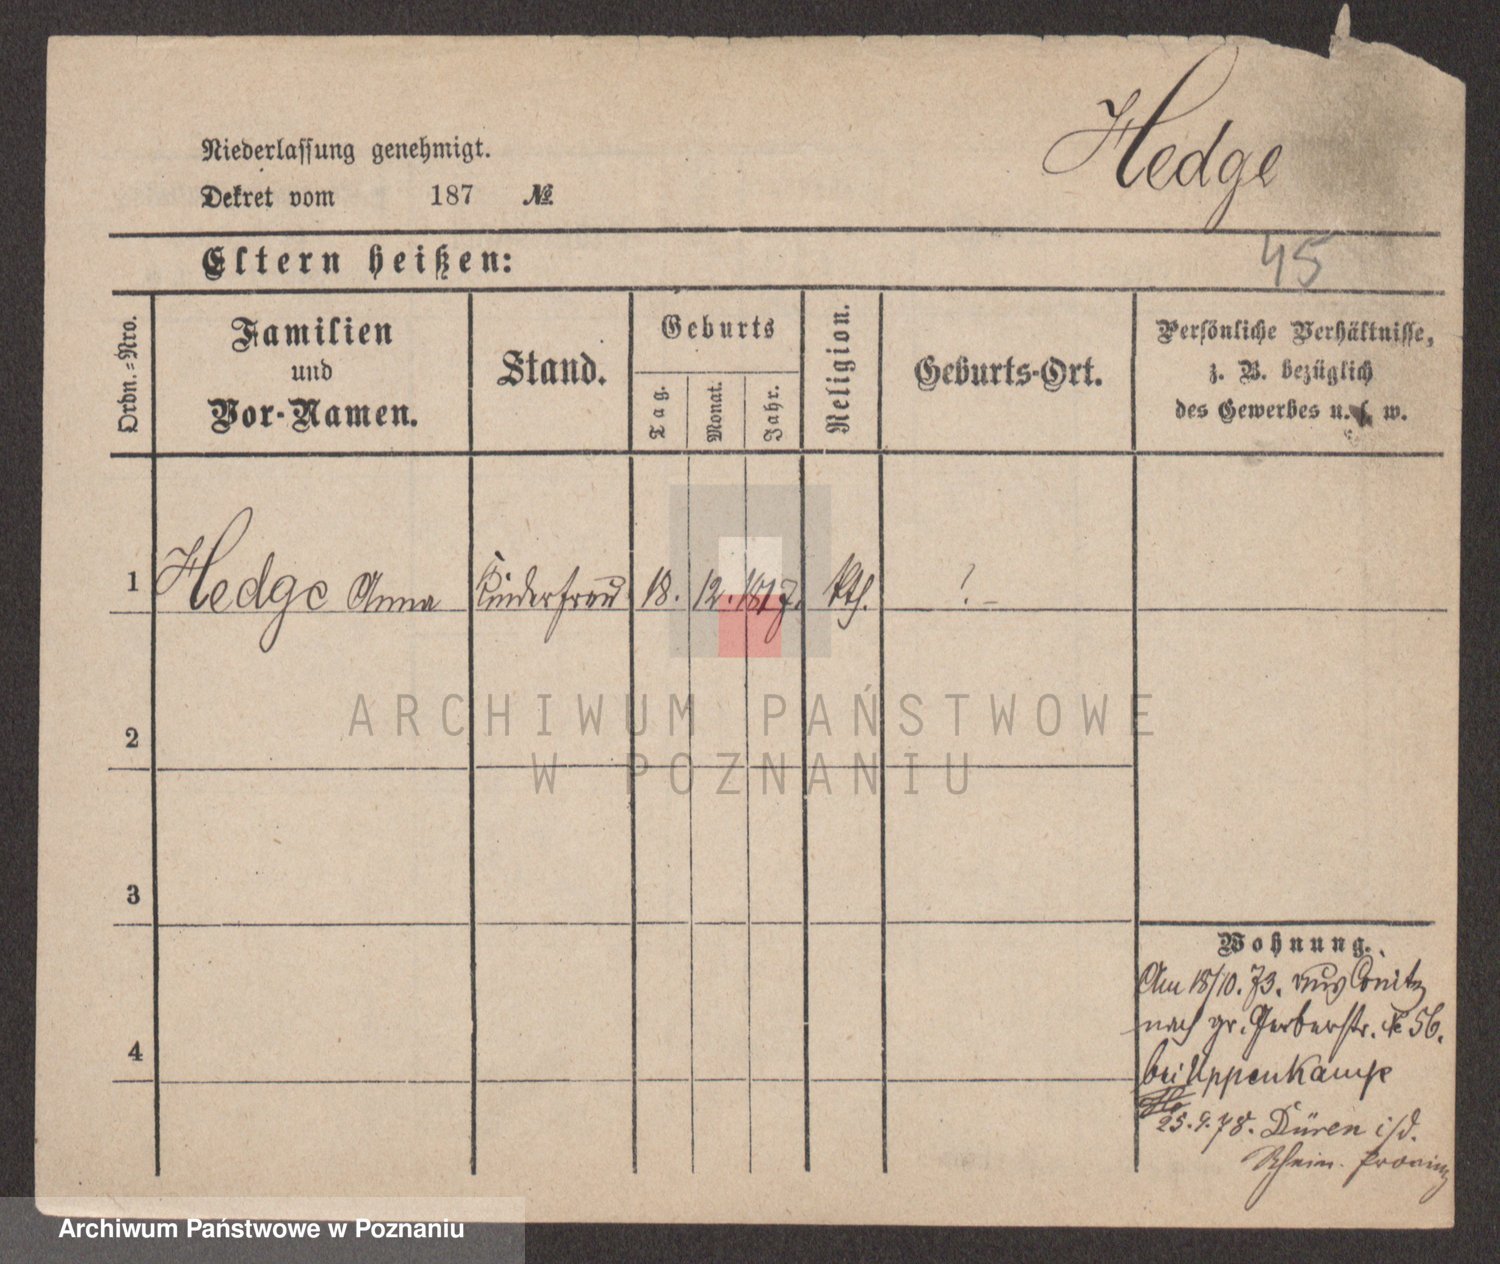 Hedge
Niederlassung genehmigt.
Dekret vom 187 №
45
Eltern heißen:
Ordn.-Nro.
Familien
und
Vor-Namen.
Stand.
Geburts
Tag.
Monat.
Jahr.
Religion.
Geburts-Ort.
Persönliche Verhältnisse,
z. B. bezüglich
des Gewerbes u. s. w.
1 Hedge Anna Kinderfrau 18. 12. 1817. kth. ? -
2
3
4
Wohnung.
Am 18/10. 73. aus Conitz
nach gr. Gerberstr. № 56.
bei Uppenkamp
25. 9. 78. Düren i/d.
Rhein. Provinz
ARCHIWUM PAŃSTWOWE
W POZNANIU
Archiwum Państwowe w Poznaniu